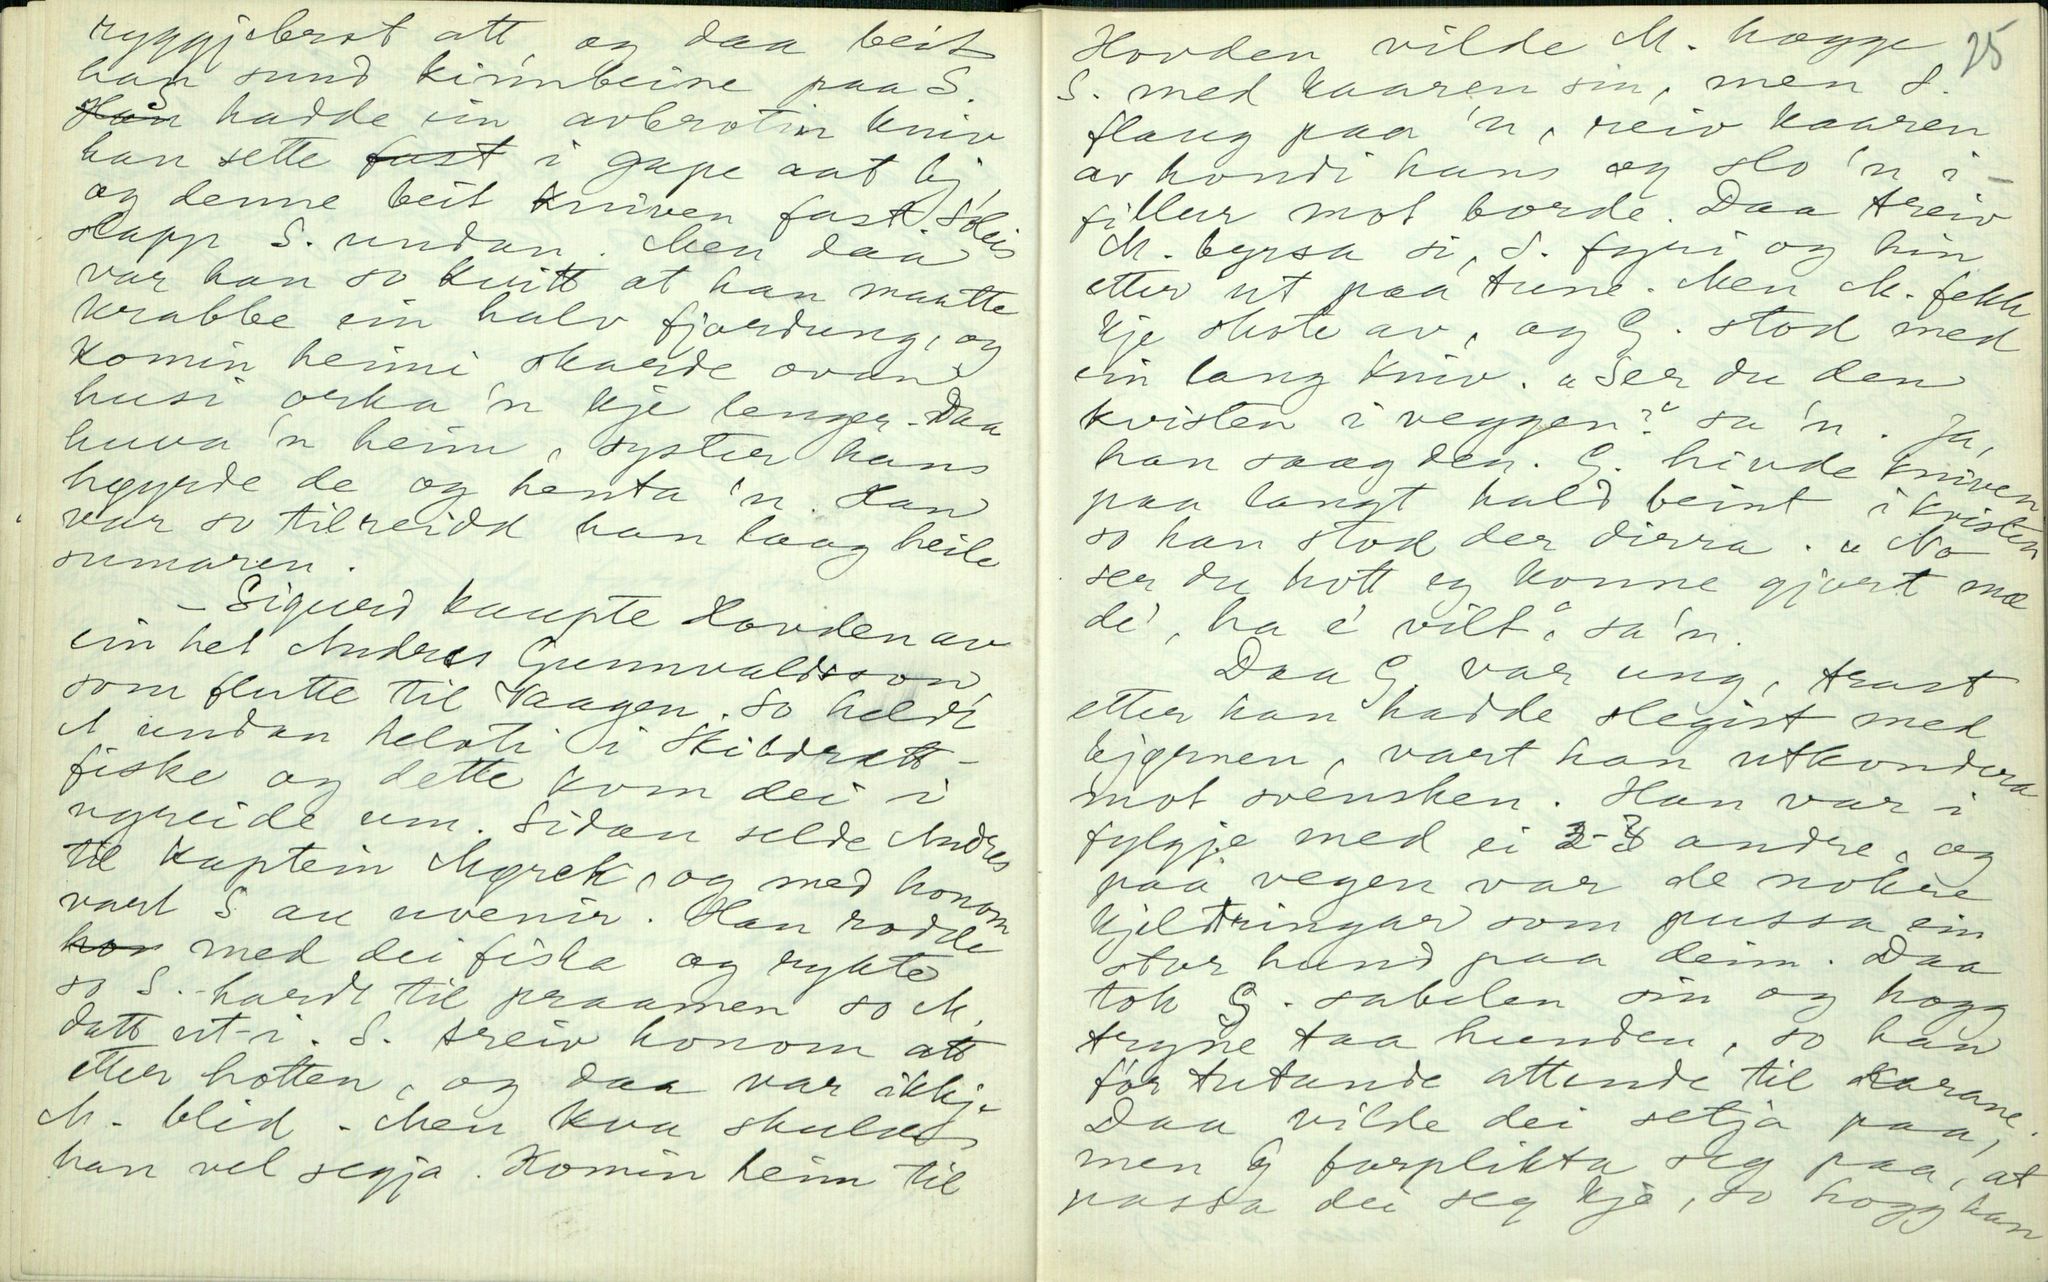 ryggjebrot att, og daa beit
han sund kinnbeine paa S.
S hadde ein avbrotin kniv
han sette fast i gape aat bj.
og denne beit kniven fast. Soleis
slapp S. undan. Men daa
var han so kvitt at han maatte
krabbe ein halv fjordung, og
komin heimi skarde ovan
husi orka 'n kje lenger. Daa
huva 'n heim, syster hans
høyrde de og henta 'n. Han
var so tilreidd han laag heile
sumaren.
- Sigurd kaupte Hovden av
ein het Andres Gunnvaldsson
som flutte til Vaagen. So heldt
A undan helvti i Skibdrett-
fiske og dette kom dei i
ugreide um. Sidan selde Andres
til kaptein Mørck, og med honom
vart S au uvenir. Han rodde
hor med dei fiska og rykte
so S. hardt til praamen so M.
datt ut-i. S. treiv honom att
etter hotten, og daa var ikkje
M. blid. Men kva skulde
han vel segja. Komin heim til
25
Hovden vilde M. hogge
S. med kaaren sin, men S.
flaug paa 'n, reiv kaaren
av hondi hans og slo 'n i-
fillur mot borde. Daa treiv
M. byrsa si, S. fyri og hin
etter ut paa tune. Men M. fekk
kje skote av, og G. stod med
ein lang kniv. "Ser du den
kvisten i veggen?" sa 'n. Ja,
han saag den. G. hivde kniven
paa langt hald beint i kvisten
so han stod der dirra. "No
ser du hott eg konne gjort mæ
de', ha e' vilt", sa 'n.
Daa G. var ung, trast
etter han hadde slegist med
bjørnen, vart han utkondera
mot svensken. Han var i
fylgje med ei 2-3 andre, og
paa vegen var de nokre
kjeltringar som pussa ein
stor hund paa deim. Daa
tok G. sabelen sin og hogg
tryne taa hunden, so han
for tutande attende til karane.
Daa vilde dei setja paa,
men G forplikta seg paa, at
passa dei seg kje, so hogg han